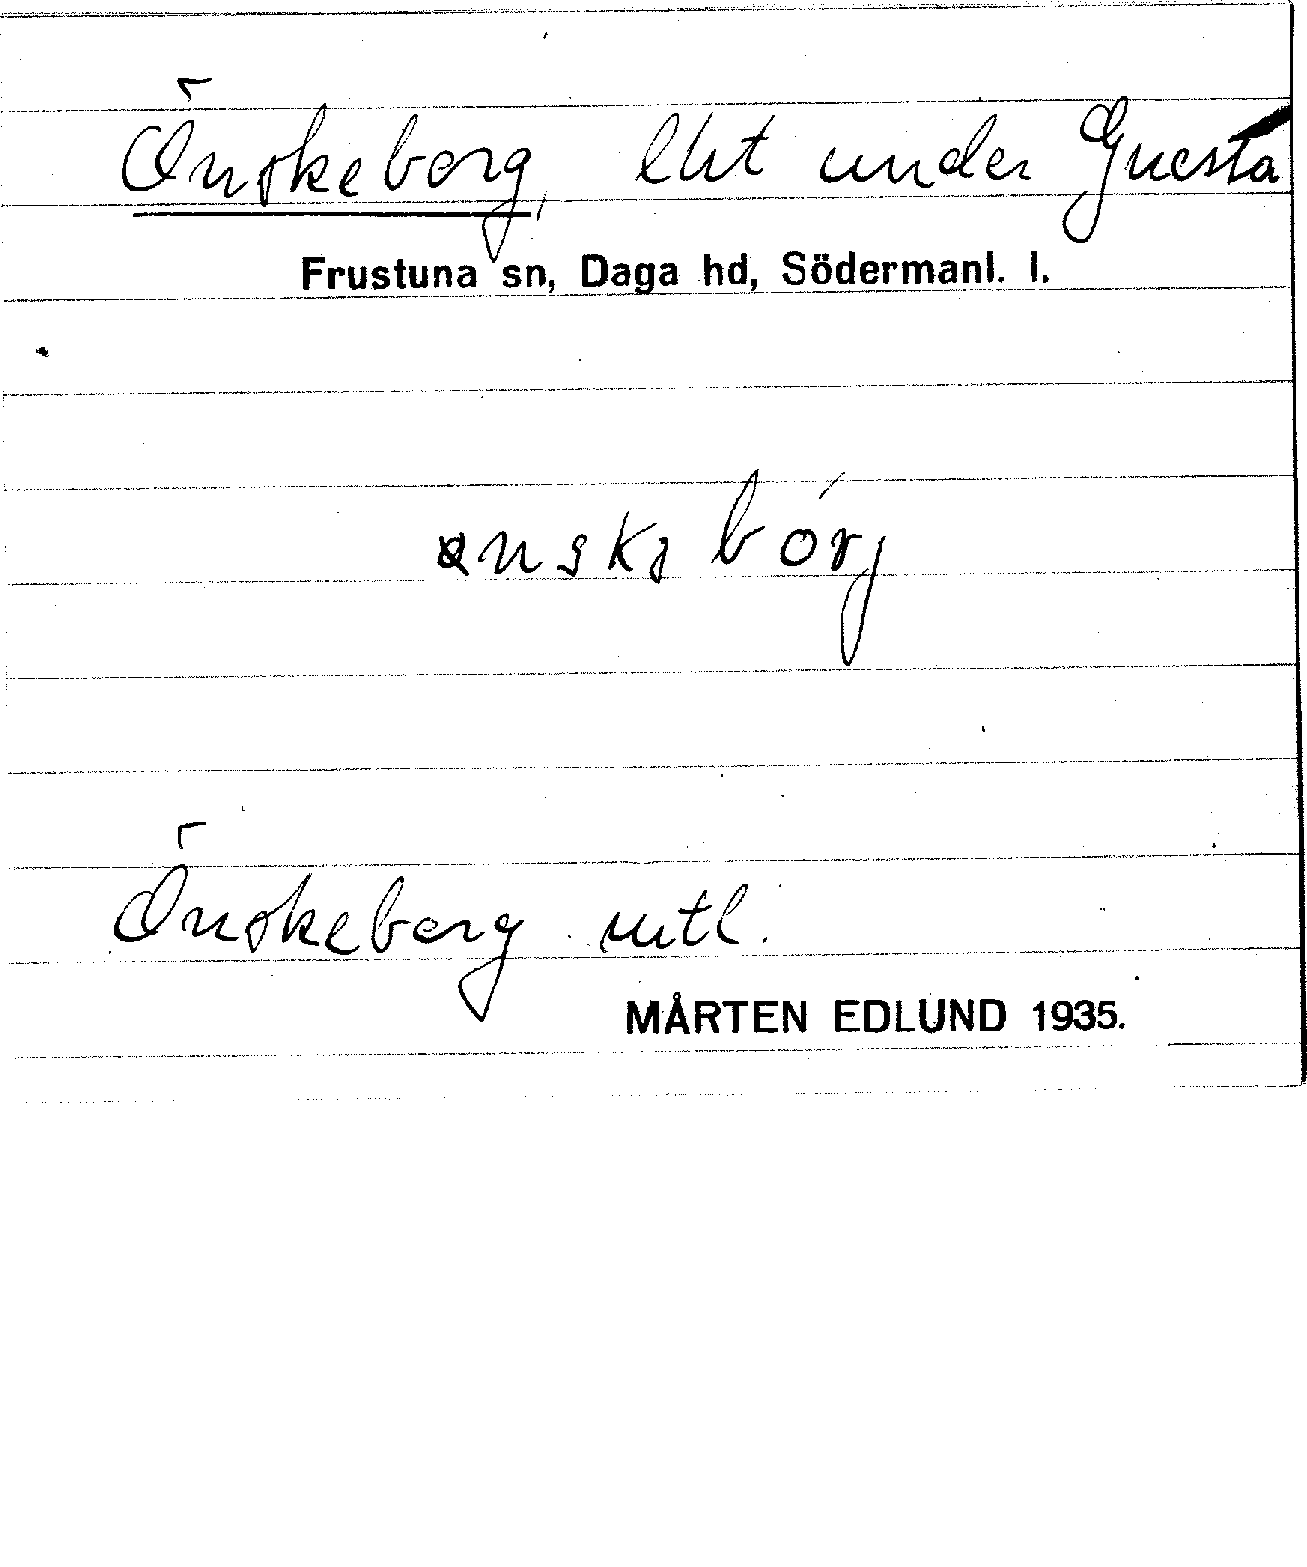 Önskeborg, lht under Gnesta
Frustuna sn, Daga hd, Södermanl. l.
Önskeborg mtl.
MÅRTEN EDLUND 1935.